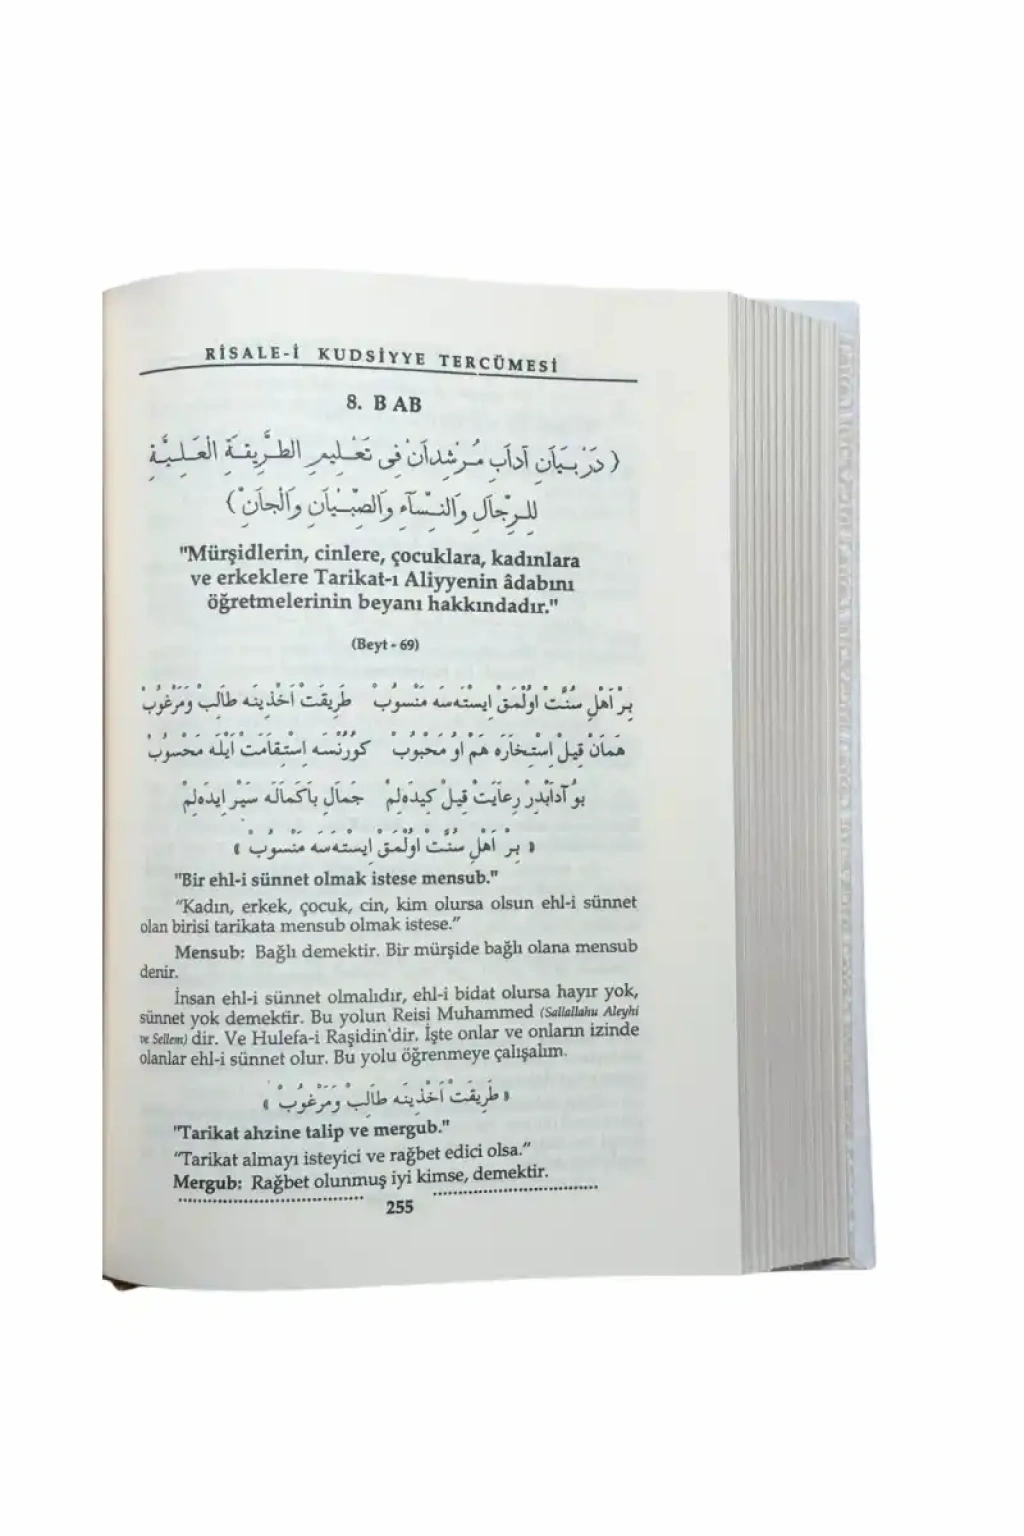 RİSALE-İ KUDSİYYE TERCÜMESİ
8. BAB
(دَرْ بَيَانِ آدَابِ مُرْشِدَانْ فِى تَعْلِيمِ الطَّرِيقَةِ الْعَلِيَّةِ
لِلرِّجَالِ وَالنِّسَآءِ وَالصِّبْيَانِ وَالْجَانْ)
"Mürşidlerin, cinlere, çocuklara, kadınlara
ve erkeklere Tarikat-ı Aliyyenin âdabını
öğretmelerinin beyanı hakkındadır."
(Beyt - 69)
بِرْ اَهْلِ سُنَّتْ اوُلْمَقْ اِيسْتَهسَه مَنْسُوبْ طَرِيقَتْ اَخْذِينَه طَالِبْ وَمَرْغُوبْ
هَمَانْ قِيلْ اِسْتِخَارَه هَمْ اوُ مَحْبُوبْ كُورُنْسَه اِسْتِقَامَتْ اَيْلَه مَحْسُوبْ
بُو آدَابْدِرْ رِعَايَتْ قِيلْ كِيدَهلِمْ جَمَالِ بَاكَمَالَه سَيْرْ اِيدَهلِمْ
« بِرْ اَهْلِ سُنَّتْ اوُلْمَقْ اِيسْتَهسَه مَنْسُوبْ »
"Bir ehl-i sünnet olmak istese mensub."
"Kadın, erkek, çocuk, cin, kim olursa olsun ehl-i sünnet
olan birisi tarikata mensub olmak istese."
Mensub: Bağlı demektir. Bir mürşide bağlı olana mensub
denir.
İnsan ehl-i sünnet olmalıdır, ehl-i bidat olursa hayır yok,
sünnet yok demektir. Bu yolun Reisi Muhammed (Sallallahu Aleyhi
ve Sellem) dir. Ve Hulefa-i Raşidin'dir. İşte onlar ve onların izinde
olanlar ehl-i sünnet olur. Bu yolu öğrenmeye çalışalım.
« طَرِيقَتْ اَخْذِينَه طَالِبْ وَمَرْغُوبْ »
"Tarikat ahzine talip ve mergub."
"Tarikat almayı isteyici ve rağbet edici olsa."
Mergub: Rağbet olunmuş iyi kimse, demektir.
255